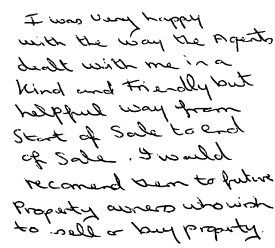 I was very happy
with the way the Agents
dealt with me in a
Kind and Friendly but
helpful way from
Start of Sale to end
of Sale. I would
recomend them to future
Property owners who wish
to sell or buy property.